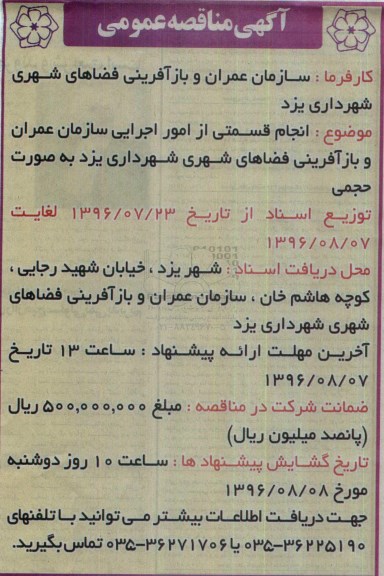 آگهی مناقصه عمومی
کارفرما : سازمان عمران و بازآفرینی فضاهای شهری
شهرداری یزد
موضوع : انجام قسمتی از امور اجرایی سازمان عمران
و بازآفرینی فضاهای شهری شهرداری یزد به صورت
حجمی
توزیع اسناد از تاریخ ۱۳۹۶/۰۷/۲۳ لغایت
۱۳۹۶/۰۸/۰۷
محل دریافت اسناد : شهر یزد ، خیابان شهید رجایی ،
کوچه هاشم خان ، سازمان عمران و بازآفرینی فضاهای
شهری شهرداری یزد
آخرین مهلت ارائه پیشنهاد : ساعت ۱۳ تاریخ
۱۳۹۶/۰۸/۰۷
ضمانت شرکت در مناقصه : مبلغ ۵۰۰,۰۰۰,۰۰۰ ریال
(پانصد میلیون ریال)
تاریخ گشایش پیشنهاد ها : ساعت ۱۰ روز دوشنبه
مورخ ۱۳۹۶/۰۸/۰۸
جهت دریافت اطلاعات بیشتر می توانید با تلفنهای
۰۳۵-۳۶۲۲۵۱۹۰ یا ۰۳۵-۳۶۲۷۱۷۰۶ تماس بگیرید.